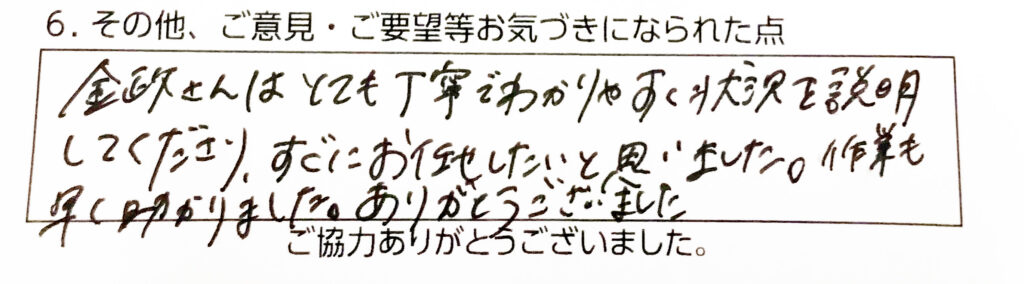 6. その他、ご意見・ご要望等お気づきになられた点
金政さんはとても丁寧でわかりやすく状況を説明
してくださり、すぐにお任せしたいと思いました。作業も
早く助かりました。ありがとうございました
ご協力ありがとうございました。